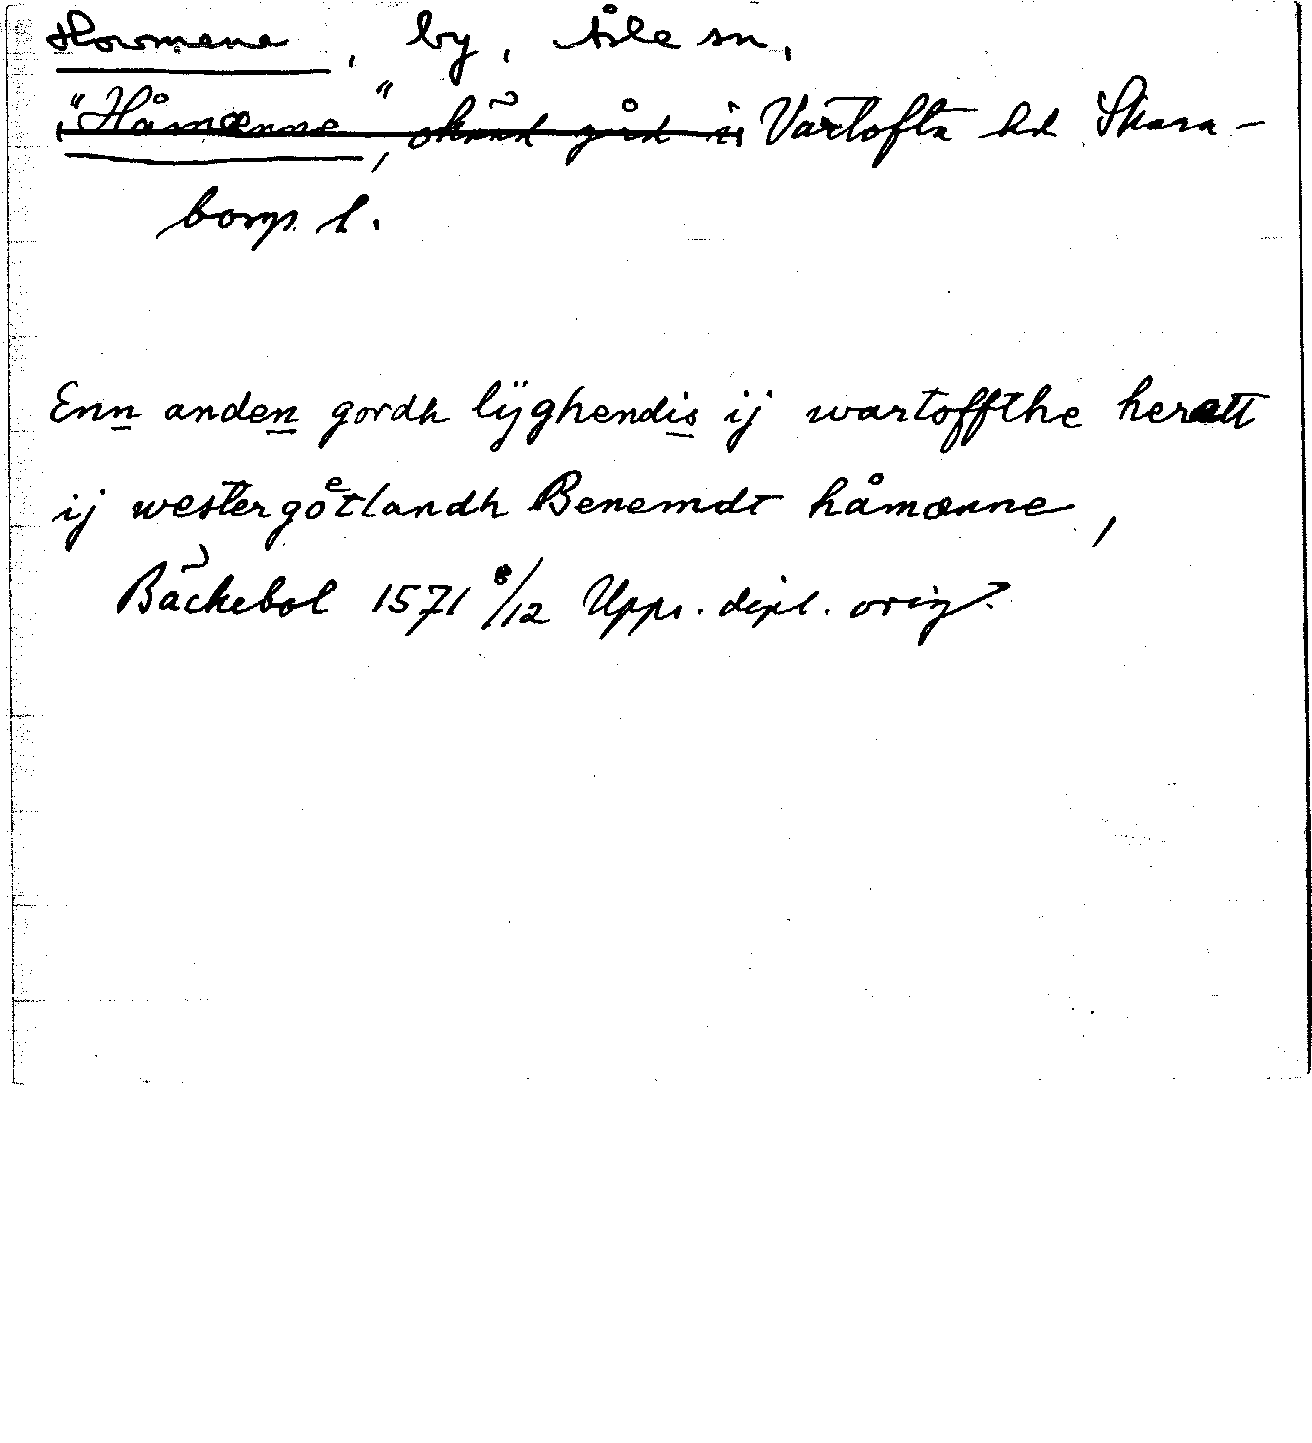 Howmene, by, Åsle sn,
"Håmænne", okänd gård i Vartofta hd Skara-
borgs l.
Enn anden gordh lÿghendis ij wartoffthe herett
ij westergötlandh Benemdt håmænne,
Bäckebol 1571 /12 Upps. dipl. orig.